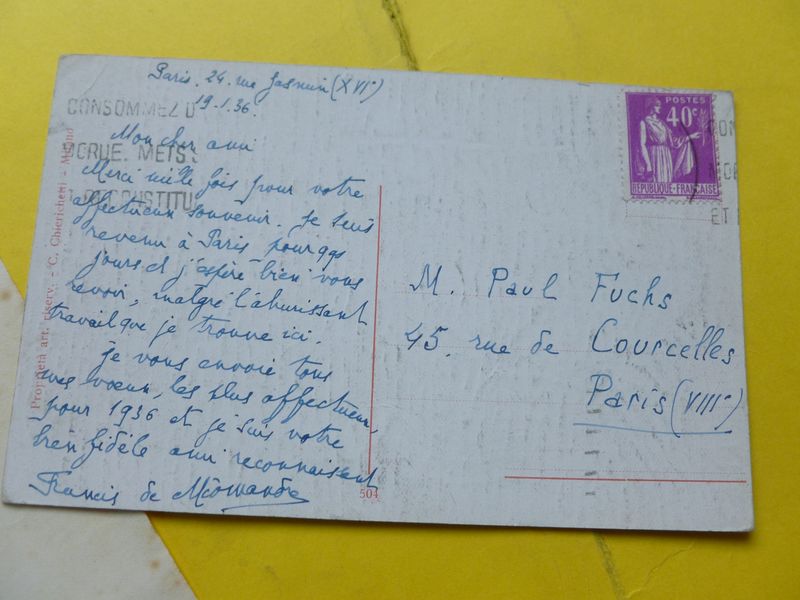 Paris. 24. rue Jasmin (XVIe)
19.1.36.
CONSOMMEZ D
MORUE. METS S
CONSTITU
Mon cher ami
Merci mille fois pour votre
affectueux souvenir. Je suis
revenu à Paris pour qqs
jours et j'espère bien vous
revoir, malgré l'ahurissant
travail que je trouve ici.
je vous envoie tous
mes voeux, les plus affectueux,
pour 1936 et je suis votre
bien fidèle ami reconnaissant
Francis de Miomandre
Proprietà art. riserv. - C. Chiericheti - Milano
504
POSTES
40 c.
REPUBLIQUE-FRANÇAISE
ET
M. Paul Fuchs
45. rue de Courcelles
Paris (VIIIe)